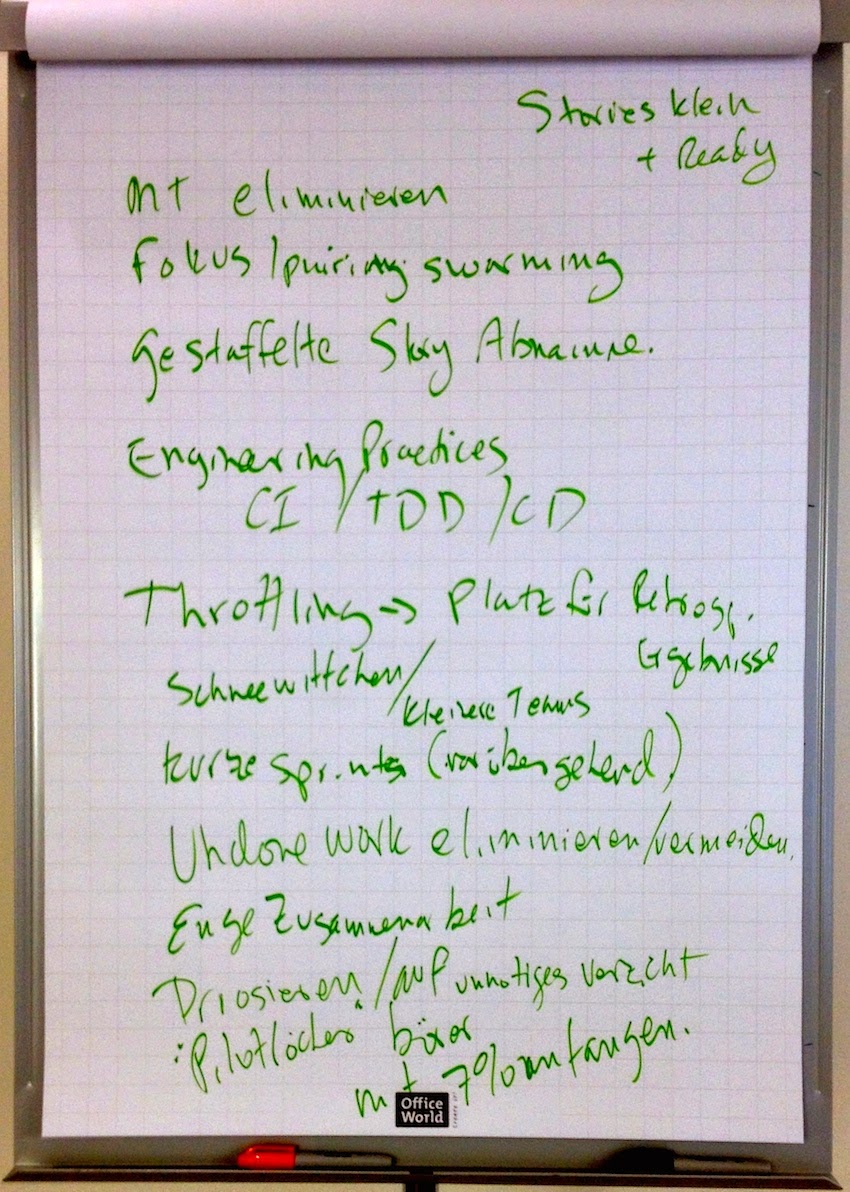 Stories klein
+ Ready
MT eliminieren
Fokus / pairing swarming
Gestaffelte Story Abnahme.
Engineering Practices
CI / TDD / CD
Throttling → Platz für Retrosp.
Ergebnisse
Schneewittchen /
kleinere Teams
kurze Sprints (vorübergehend)
Undone Work eliminieren/vermeiden.
Enge Zusammenarbeit
Priosieren / auf unnötiges verzicht
"Pilotlöcher"
mit 7% anfangen.
Office
World